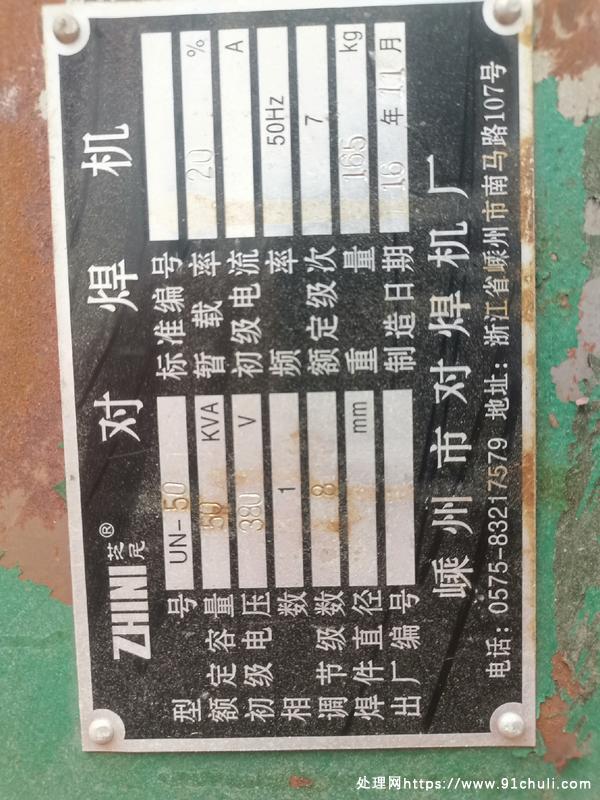 ZHINI 芝尼® 对焊机
型号 UN-50 标准编号
额定容量 50 KVA 暂载率 20 %
初级电压 380 V 初级电流 A
相数 1 频率 50Hz
调节级数 8 额定级次 7
焊件直径 mm 重量 165 kg
出厂编号 制造日期 16年11月
嵊州市对焊机厂
电话: 0575-83217579 地址: 浙江省嵊州市南马路107号
处理网https://www.91chuli.com